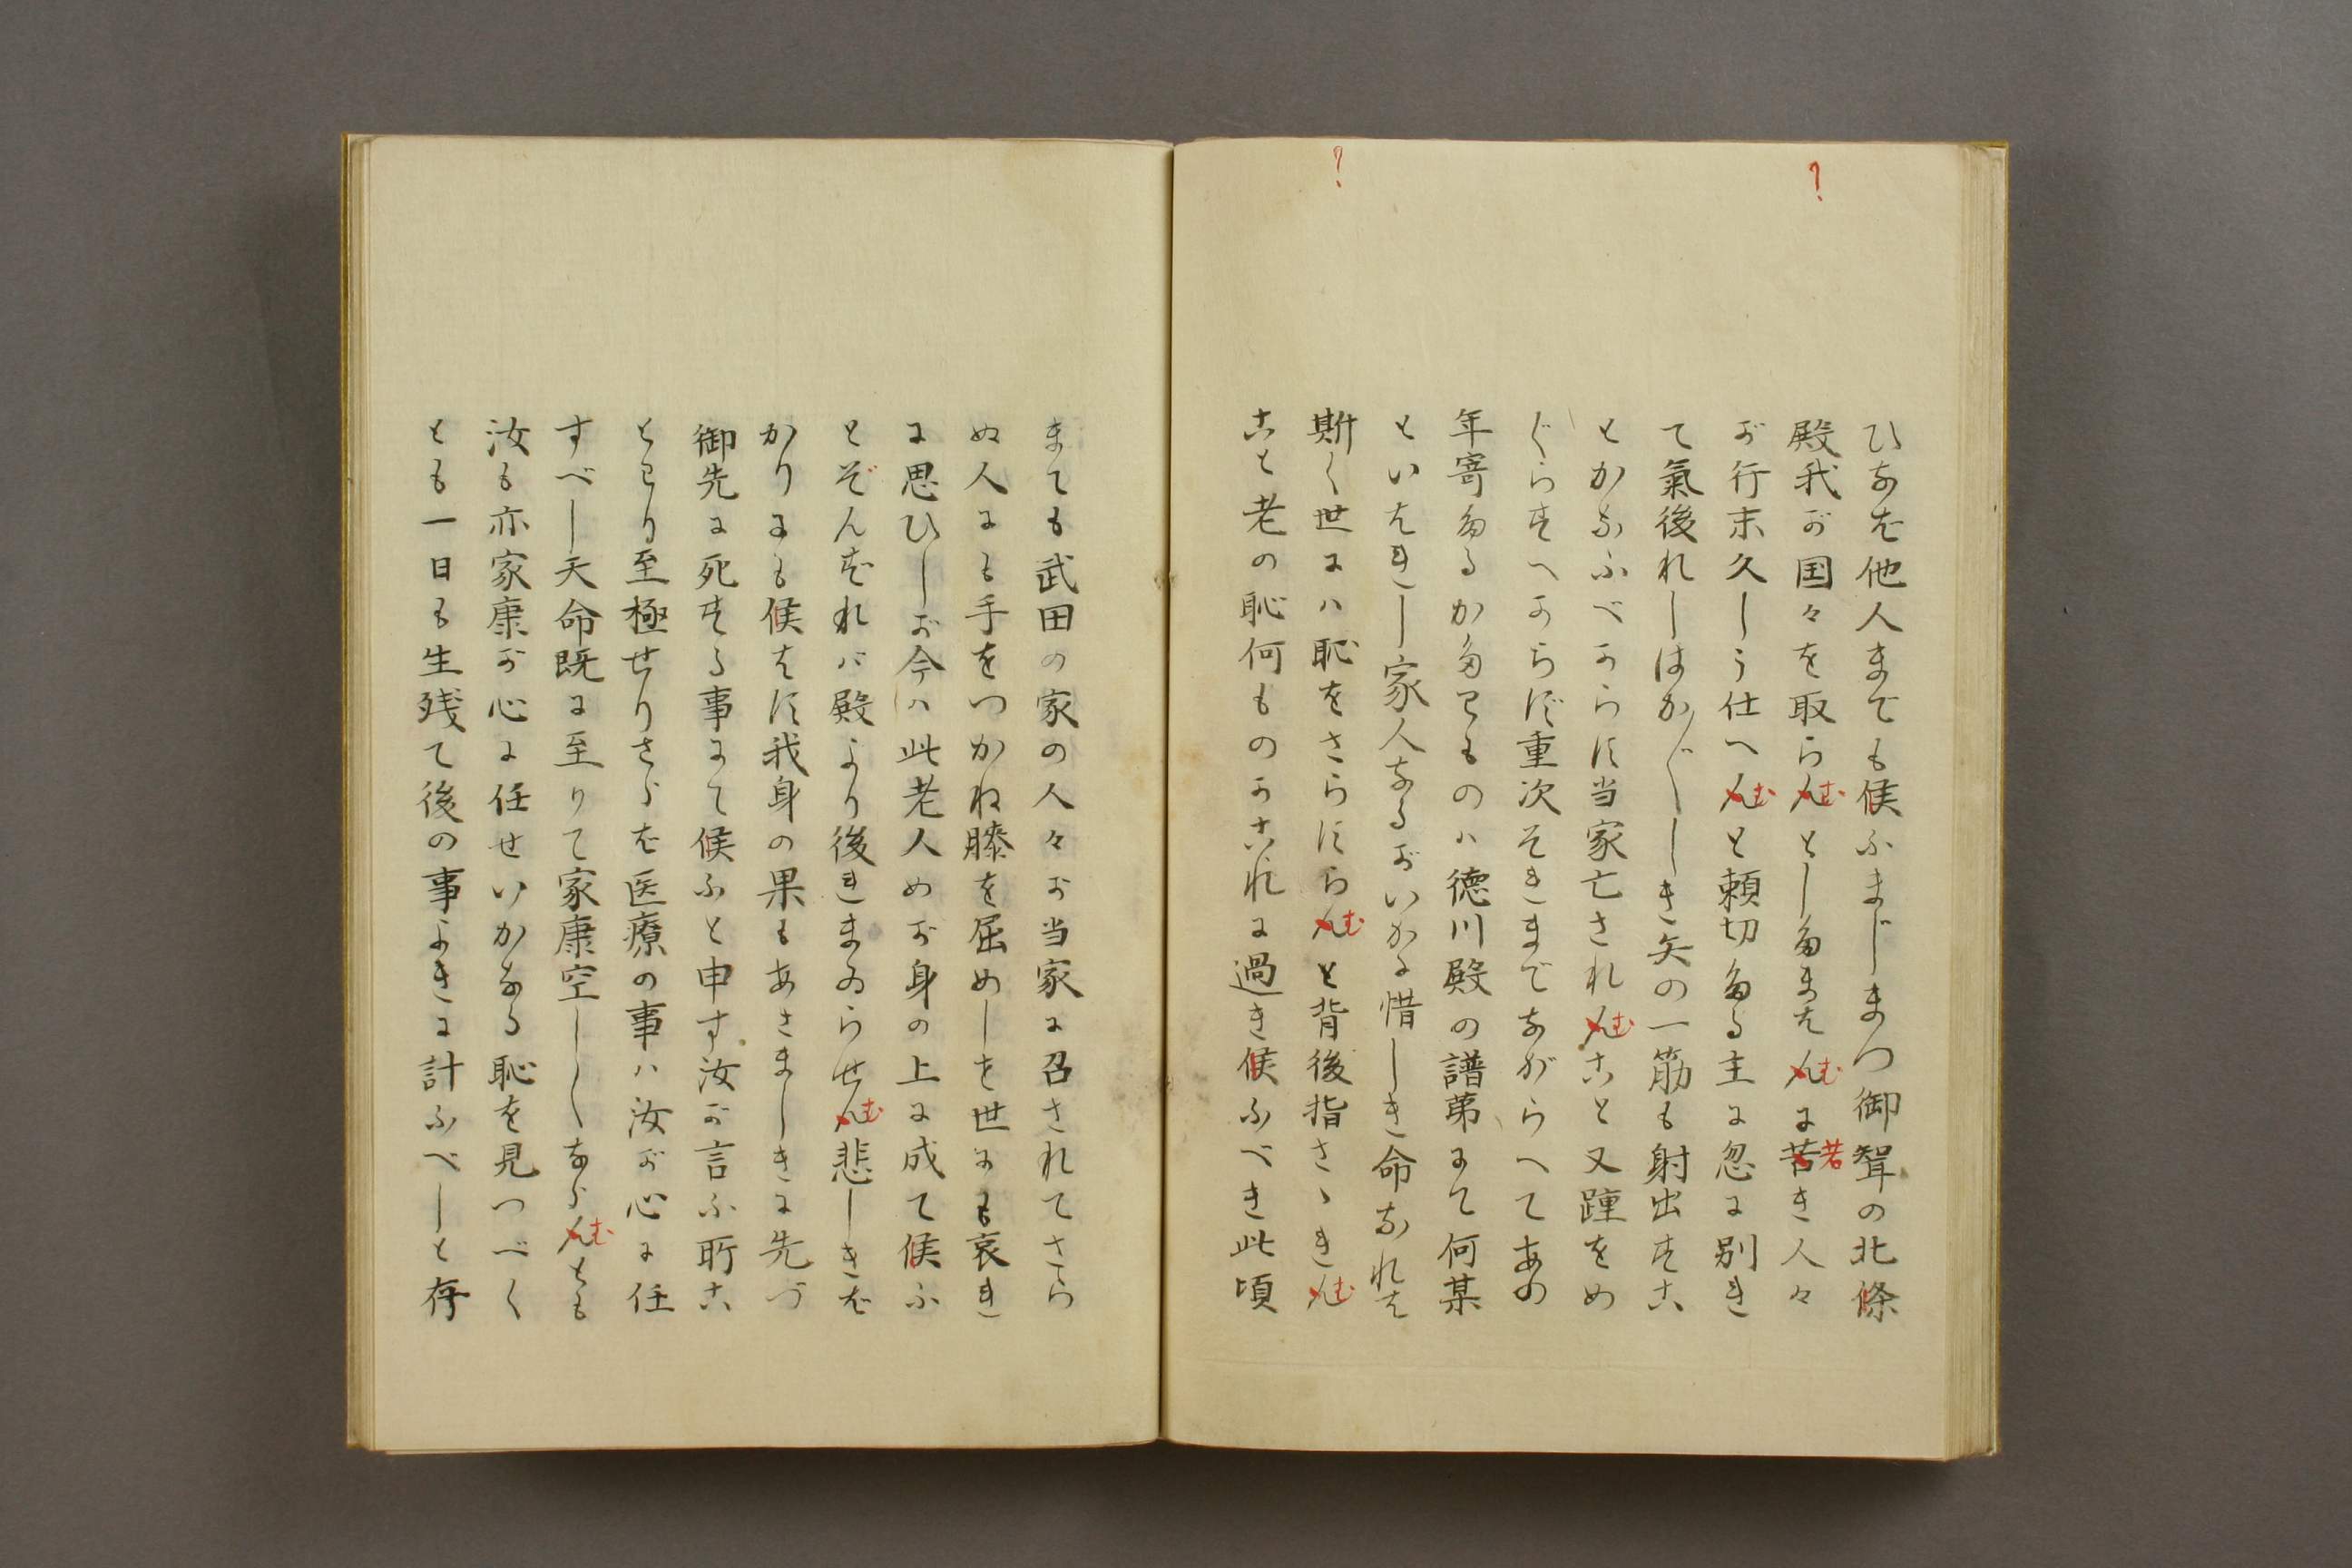 ひなば他人までも候ふまじまつ御聟の北條
殿我が国々を取らんむとしたまはんむに苦若き人々
が行末久しう仕へんむと頼切たる主に忽に別れ
て氣後れしはか〴〵しき矢の一筋も射出すこ
とかなふべからず当家亡されんむこと又踵をめ
ぐらすべからず重次それまでながらへてあの
年寄たるかたわものハ徳川殿の譜第にて何某
といはれし家人なるがいかに惜しき命なれは
斯く世にハ恥をさらすらんむと背後指さゝれんむ
こと老の恥何ものかこれに過き候ふべき此頃
まても武田の家の人々が当家に召されてさら
ぬ人にも手をつかね膝を屈めしを世にも哀れ
に思ひしが今ハ此老人めが身の上に成て候ふ
とぞんずれバ殿より後れまゐらせんむ悲しきば
かりにも候はす我身の果もあさましきに先づ
御先に死する事にて候ふと申す汝が言ふ所こ
とわり至極せりさらば医療の事ハ汝が心に任
すべし天命既に至りて家康空しくならんむとも
汝も亦家康が心に任せいかなる恥を見つべく
とも一日も生残て後の事よきに計ふべしと存
?
?